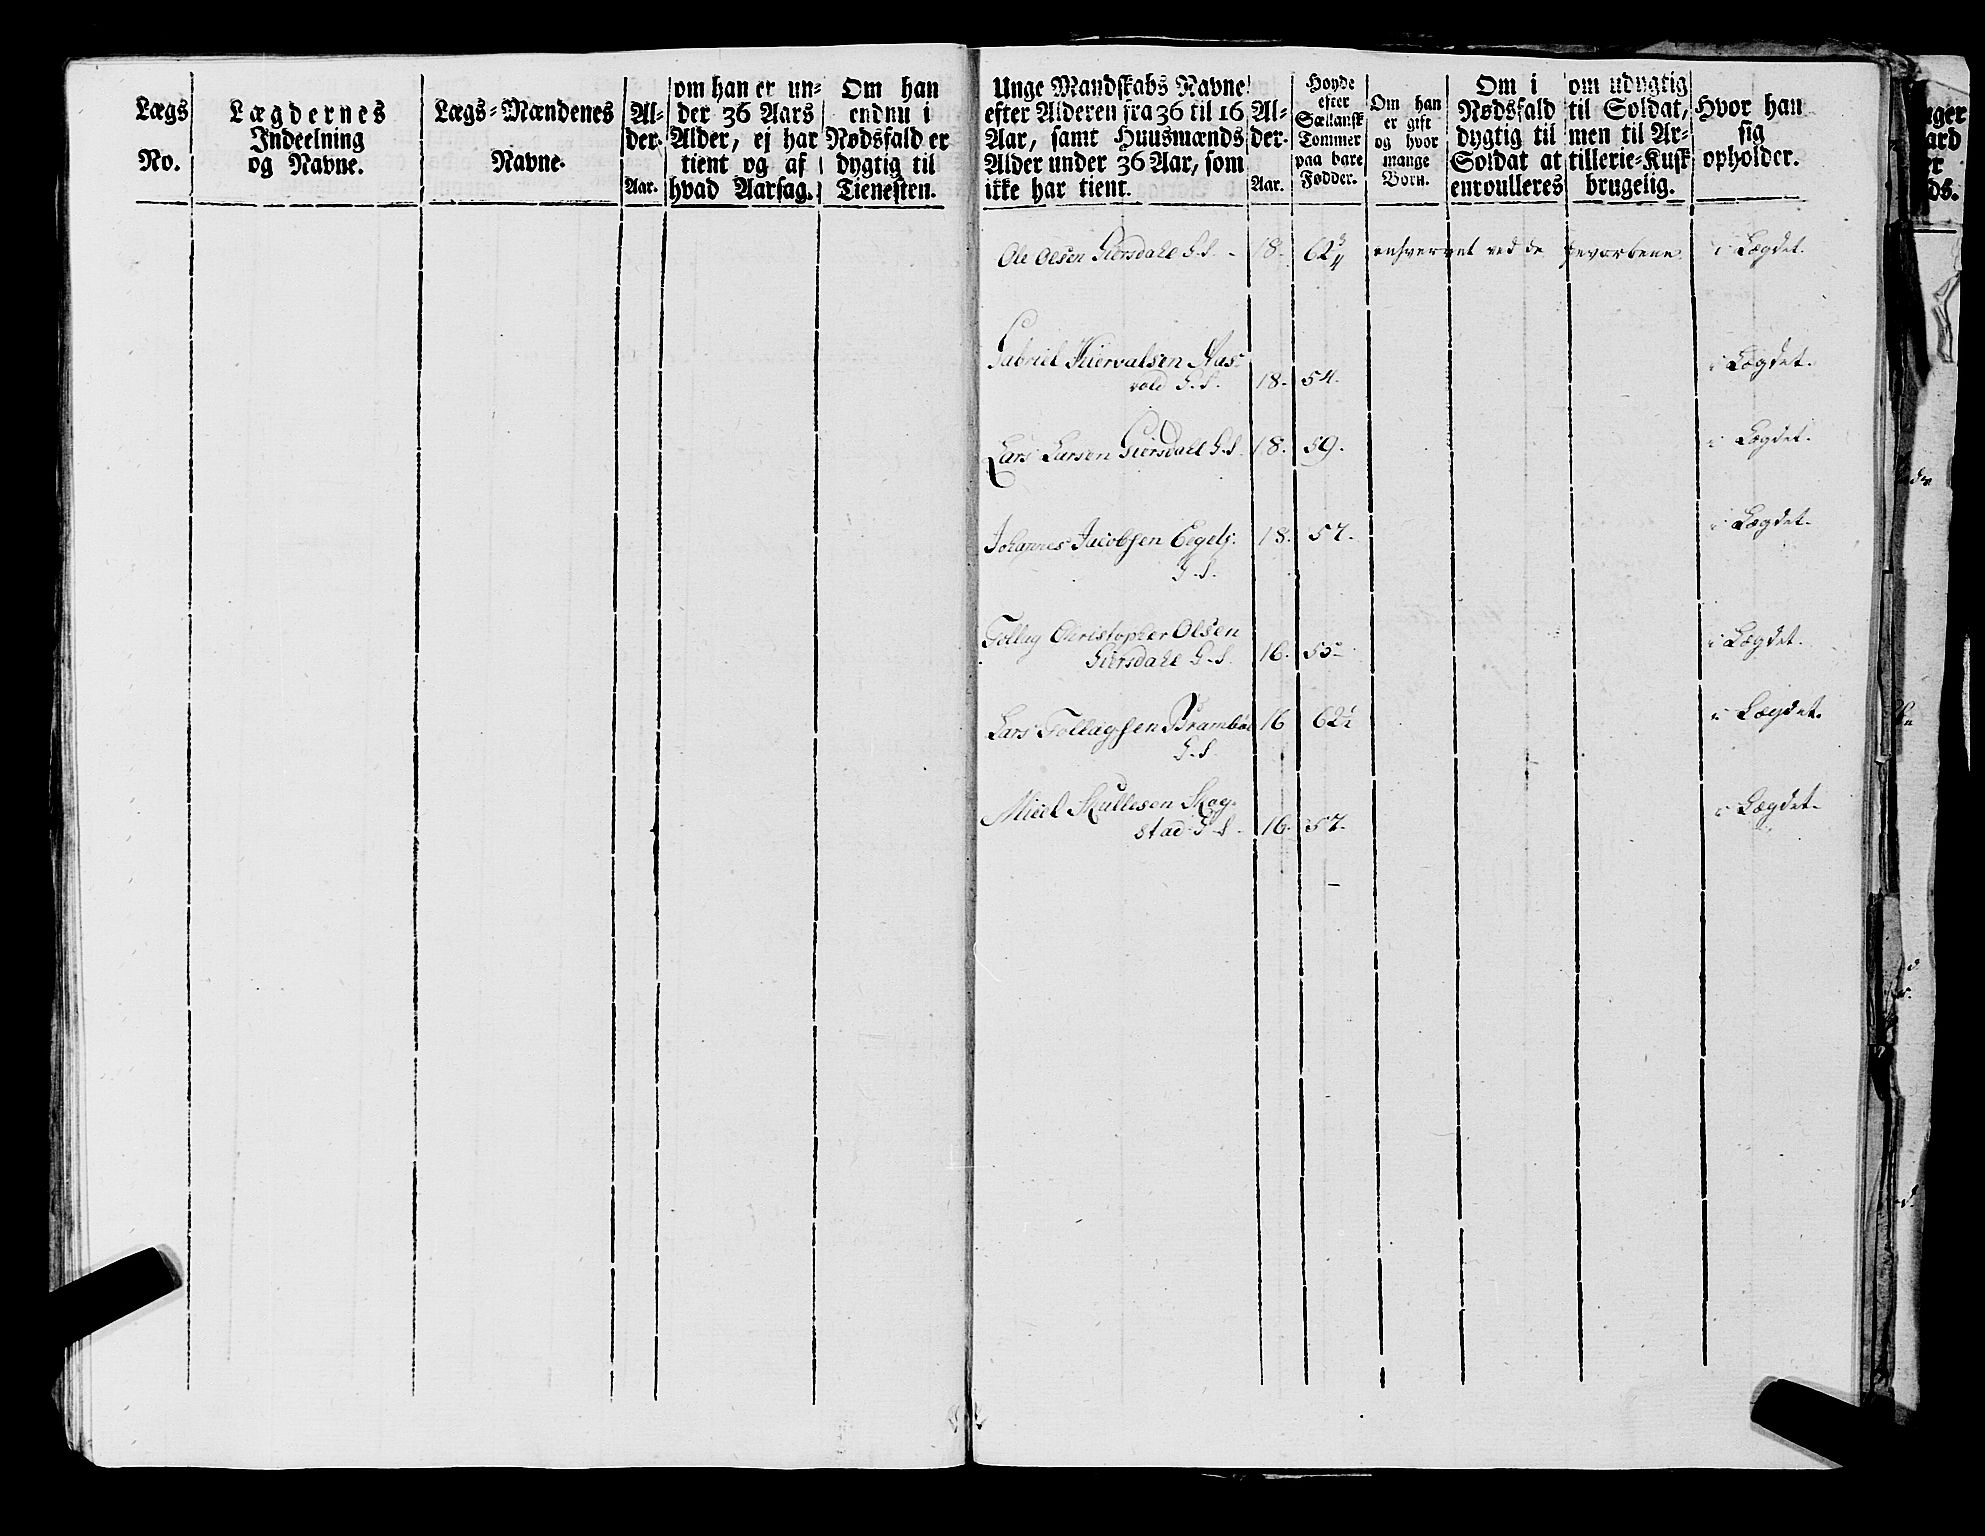 Lægs
No.
Lægdernes
Indeelning
og Navne.
Lægs-Mændenes
Navne.
Al-
der.
Aar.
om han er un-
der 36 Aars
Alder, ej har
tient og af
hvad Aarsag.
Om han
endnu i
Nødsfald er
dygtig til
Tienesten.
Unge Mandskabs Navne
efter Alderen fra 36 til 16
Aar, samt Huusmænds
Alder under 36 Aar, som
ikke har tient.
Al-
der.
Aar.
Høyde
efter
Sællansk
Tommer
paa bare
Fødder.
Om han
er gift
og hvor
mange
Børn.
Om i
Nødsfald
dygtig til
Soldat at
enroulleres
om udygtig
til Soldat,
men til Ar-
tillerie-Kusk
brugelig.
Hvor han
sig
opholder.
Ole Olsen Giersdahl G. S. - 18. 62 3/4 enhvervet ved de hevorbene i Lægdet.
Gabriel Aas-
vold G. S. 18. 54. i Lægdet.
Lars Larsen Giersdahl G. S. 18. 59. i Lægdet.
Johannes Jacobsen Eegels. 18. 57. i Lægdet.
G. S.
Tollag Christopher Olsen
Giersdahl G. S. 16. 55 i Lægdet.
Lars Tollagsen Brambøe 16 62½ i Lægdet.
G. S.
Micel Skullesen Skog-
stad G. S. 16. 57. i Lægdet.